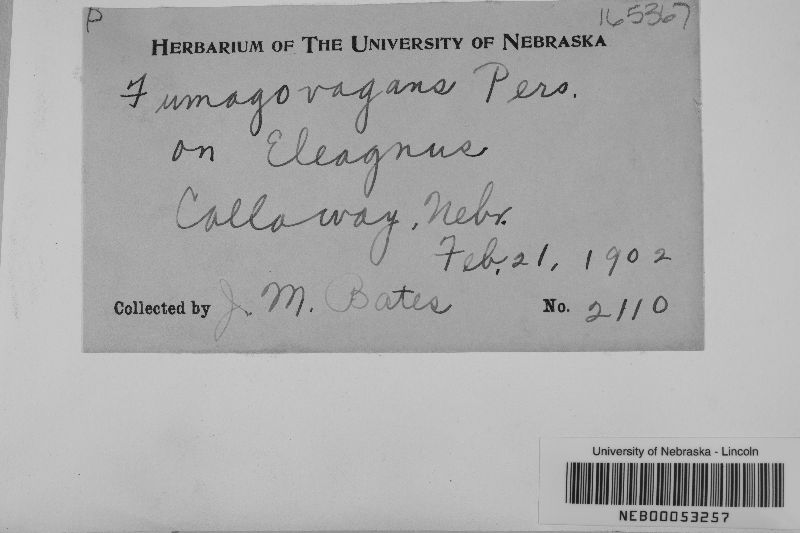 P 165367
HERBARIUM OF THE UNIVERSITY OF NEBRASKA
Fumago vagans Pers.
on Eleagnus
Callaway, Nebr.
Feb, 21, 1902
Collected by J. M. Bates No. 2110
University of Nebraska - Lincoln
NEB00053257